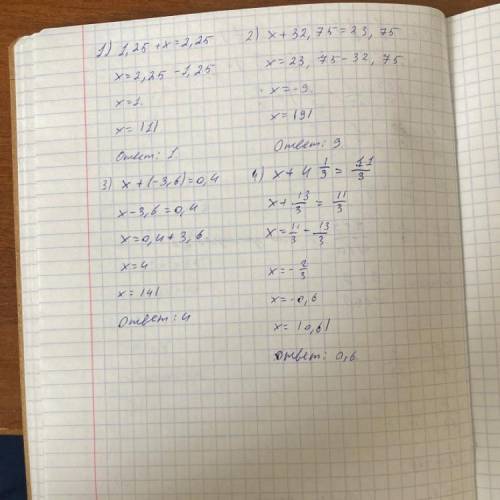 1) 1,25 + x = 2,25
x = 2,25 - 1,25
x = 1
x = |1|
Ответ: 1
2) x + 32,75 = 23,75
x = 23,75 - 32,75
x = -9
x = |9|
Ответ: 9
3) x + (-3,6) = 0,4
x - 3,6 = 0,4
x = 0,4 + 3,6
x = 4
x = |4|
Ответ: 4
4) x + 4 1/3 = 11/3
x + 13/3 = 11/3
x = 11/3 - 13/3
x = -2/3
x = -0,6
x = |0,6|
Ответ: 0,6